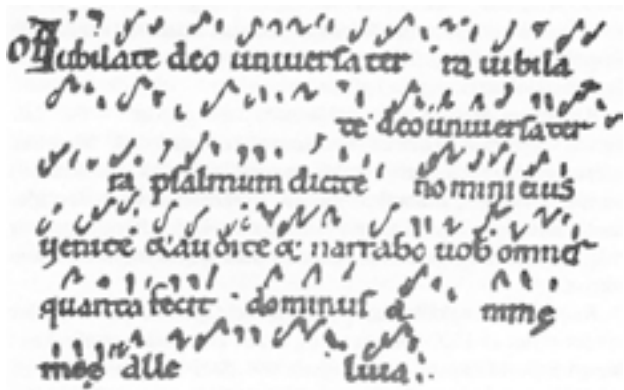 Of Iubilate deo universa ter ra iubila
te deo universa ter
ra psalmum dicite nomini eius
venite & audite & narrabo uob omnes
quanta fecit dominus a nimę
męę alle luia.